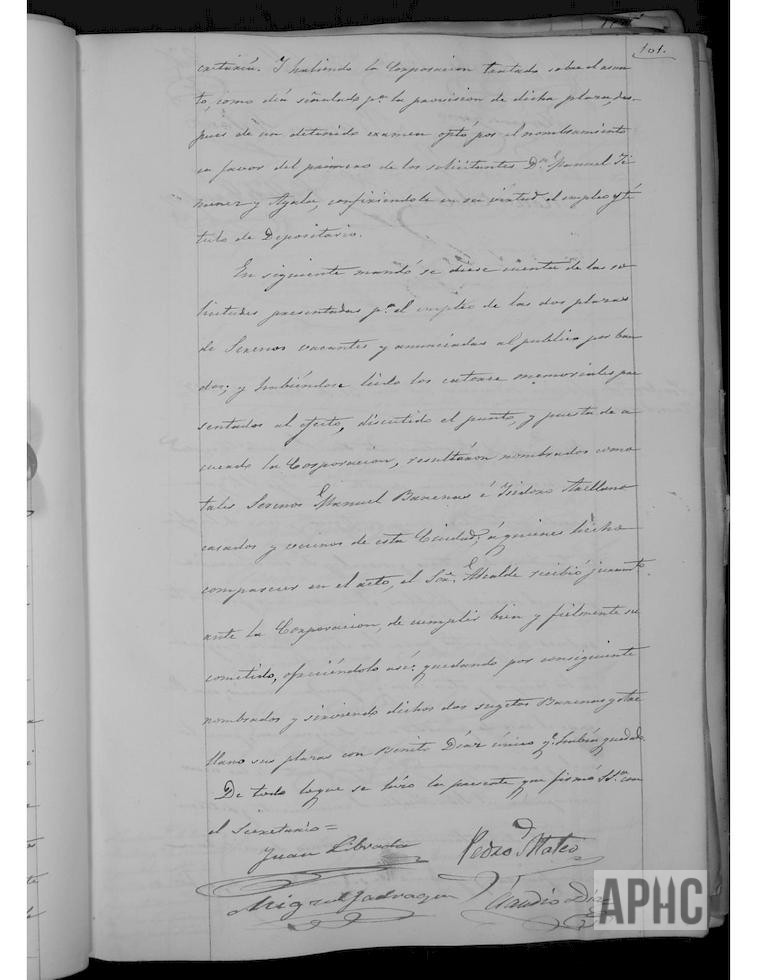 101.
cretaría. Y habiendo la Corporacion tratado sobre el asun
to, como dia señalado pª la provision de dicha plaza, des-
pues de un detenido examen optó por el nombramiento
en favor del primero de los solicitantes Dn. Manuel Ji
menez y Ayala, confiriendole en su virtud el empleo y tí
tulo de Depositario.
En siguiente mandó se diese cuenta de las so
licitudes presentadas pª el empleo de las dos plazas
de Serenos vacantes y anunciadas al publico por ban
dos; y habiéndose leido los catorce memoriales pre
sentados al efecto, discutido el punto, y puesta de a
cuerdo la Corporacion, resultaron nombrados como
tales Serenos Manuel Barenas é Isidoro Arellano
casados y vecinos de esta Ciudad; á quienes hecho
comparecer en el acto, el Sor. Alcalde recibió juramto.
ante la Corporacion, de cumplir bien y fielmente su
cometido, ofreciéndolo asi: quedando por consiguiente
nombrados y sirviendo dichos dos sugetos Barenas y Are
llano sus plazas con Benito Díaz único qe. habia quedado.
De todo loque se hizo la presente que firmó SSª con
el Secretario=
Juan Librada Pedro Mateo
Miguel Claudio Díaz
APHC